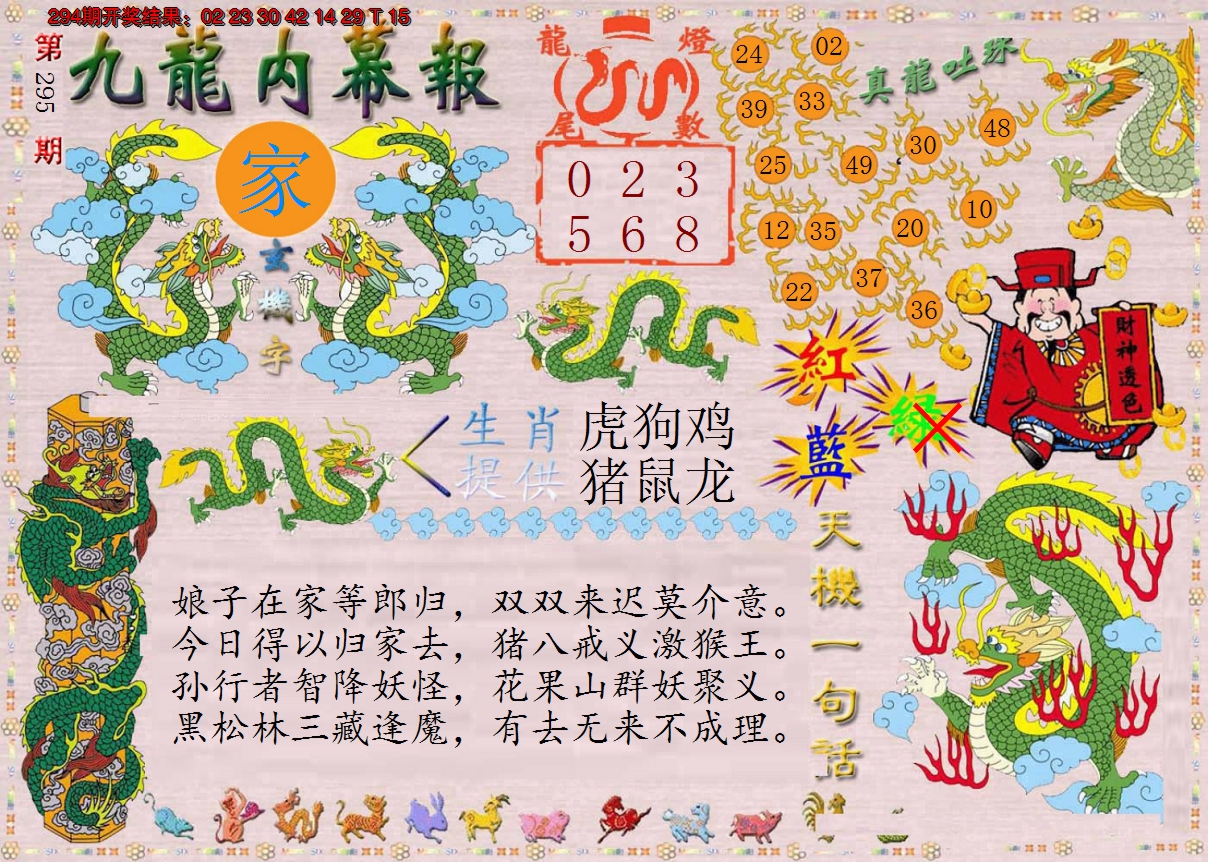 294期开奖结果：02 23 30 42 14 29 T 15
第295期
九龍内幕報
家
玄機字
龍燈尾數
0 2 3
5 6 8
真龍吐珠
24 02
39 33
25 49 30 48
12 35 20 10
22 37 36
紅
綠
藍
財神透色
生肖提供
虎狗鸡
猪鼠龙
天機一句话
娘子在家等郎归，双双来迟莫介意。
今日得以归家去，猪八戒义激猴王。
孙行者智降妖怪，花果山群妖聚义。
黑松林三藏逢魔，有去无来不成理。